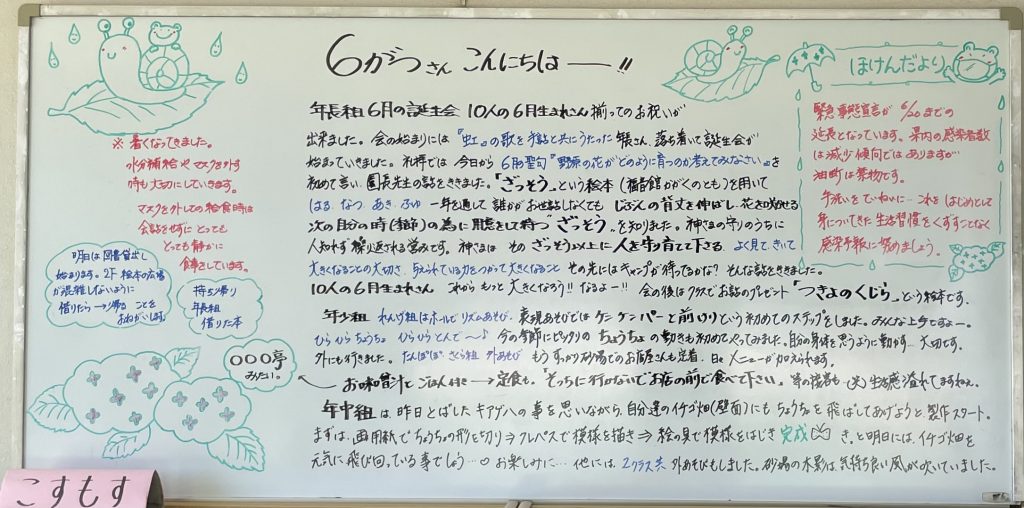 6がつさん こんにちは ー!!
年長組 6月の誕生会 10人の6月生まれさん揃ってのお祝いが
出来ました。会の始まりには『虹』の歌を手話と共にうたった年長さん、落ち着いて誕生会が
始まっていきました。礼拝では 今日から 6月の聖句『野原の花がどのように育つのか考えてみなさい。』を
初めて言い、園長先生の話をききました。「ざっそう」という絵本(福音館かがくのとも)を用いて
はる なつ あき ふゆ 一年を通して 誰がお世話しなくても じぶんの背丈を伸ばし、花を咲かせる
次の自分の時(季節)の為に用意をして待つ "ざっそう"を知りました。神さまの守りのうちに
人知れず 繰り返される営みです。神さまは その ざっそう以上に 人を守り育てて下さる よく見て、きいて
大きくなることの大切さ、与えられている力をつかって大きくなること その先にはキャンプが待ってるかな? そんな話をききました。
10人の6月生まれさん これから もっと 大きくなろう!! なるよー!! 会の後はクラスでお話のプレゼント「つきよのくじら」という絵本です。
年少組 れんげ組はホールでリズムあそび、表現あそびでは ケン ケン パーと前回りという初めてのステップをしました。みんな上手ですよー。
ひら ひら ちょうちょ ひら ひら とんで〜♪ 今の季節にピッタリの ちょうちょ の動きも初めてやってみました。自分の身体を思うように動かす… 大切です。
外にも行きました。たんぽぽ さくら組 外あそび もうすっかり砂場でのお店屋さんも定着、日々メニューが加えられます。
お味噌汁と ごはん etc → 定食も。「そっちに行かないでお店の前で食べて下さい。」等の接客も (笑) 生活感溢れてますねぇ。
年中組は、昨日とばしたキアゲハの事を思いながら、自分達のイチゴ畑(壁面)にも ちょうちょを 飛ばしてあげようと 製作スタート。
まずは、画用紙でちょうちょの形を切り⇒クレパスで模様を描き ⇒ 絵の具で模様をはじき 完成 きっと明日には、イチゴ畑を
元気に飛び回っている事でしょう…♡ お楽しみに… 他には 2クラス共 外あそびもしました。砂場の木影は、気持ち良い風が吹いていました。
※ 暑くなってきました。
水分補給や マスクを外す
時も大切にしていきます。
マスクを外しての給食時は
会話をせずに とっても
とっても静かに
食事をしています。
明日は 図書貸出し
始まります。2F 絵本の広場
が混雑しないように
借りたら → 帰る ことを
おねがいします。
持ち帰り
年長組
借りた本
〇〇〇亭
みたい。
ほけんだより
緊急事態宣言が 6/20までの
延長となっています。県内の感染者数
は減少傾向ではありますが
油断は禁物です。
手洗いを ていねいに… これを はじめとして
身についてきた 生活習慣を くずすことなく
感染予防に 努めましょう。
こすもす